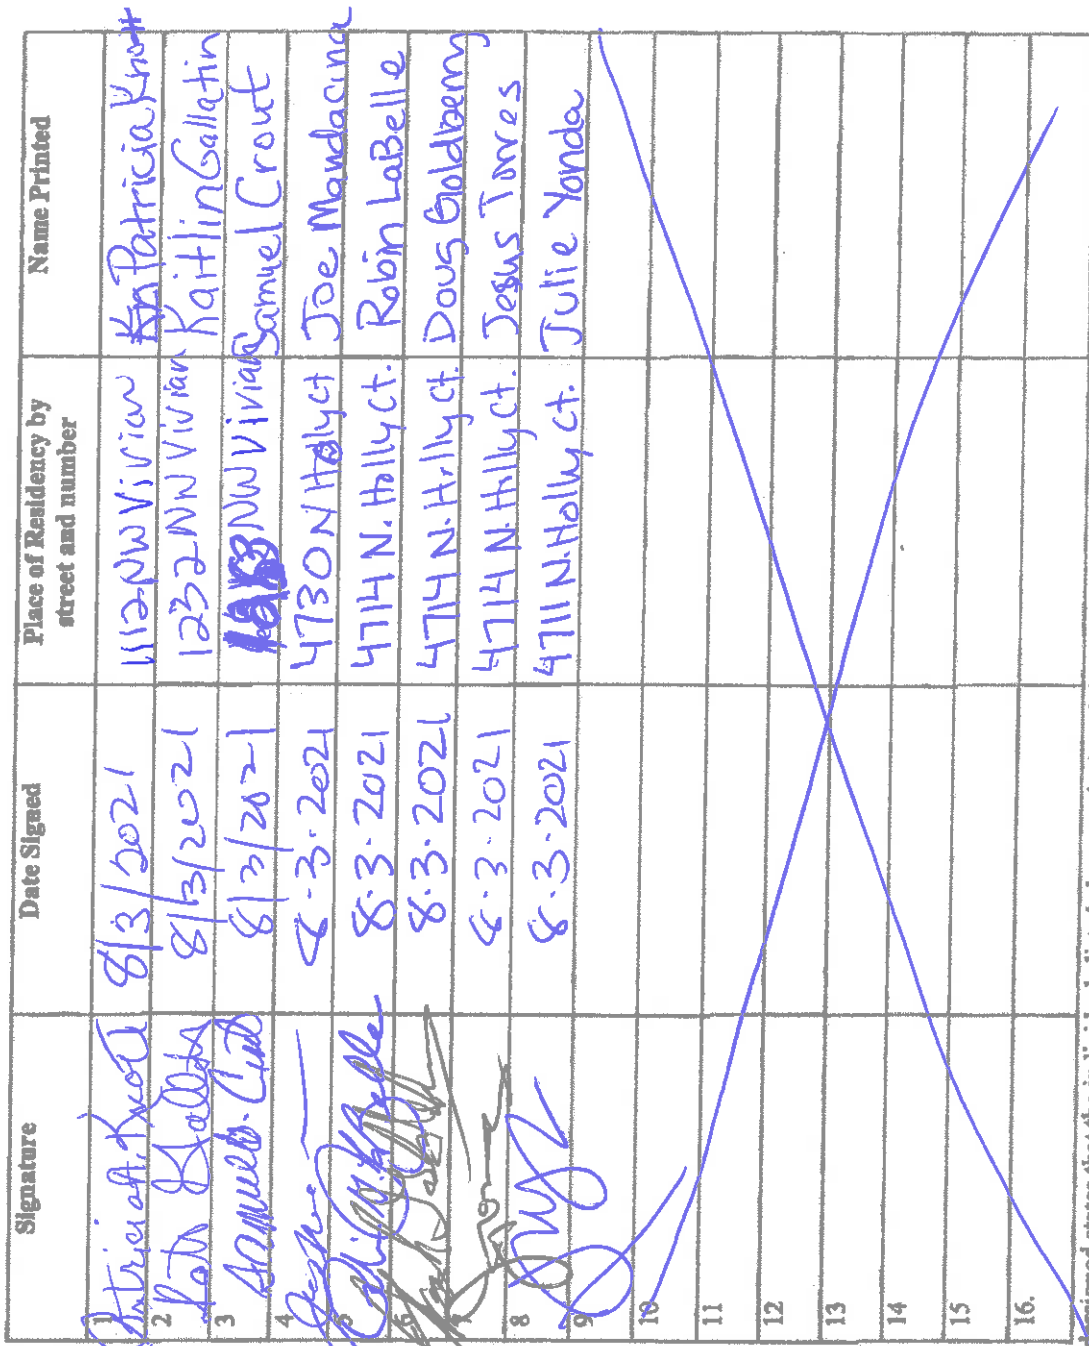 Signature Date Signed Place of Residency by street and number Name Printed
1 Patricia A. Knott 8/3/2021 1112 NW Vivion Patricia Knott
2 8/3/2021 1232 NW Vivian Kaitlin Gallatin
3 8/3/2021 NW Vivian Samuel Crout
4 8-3-2021 4730 N Holly ct Joe Mandacina
5 8-3-2021 4714 N. Holly Ct. Robin LaBelle
6 8-3-2021 4714 N. Holly ct. Doug Goldberg
7 8-3-2021 4714 N. Holly Ct. Jesus Torres
8 8-3-2021 4711 N. Holly Ct. Julie Yonda
9
10
11
12
13
14
15
16.